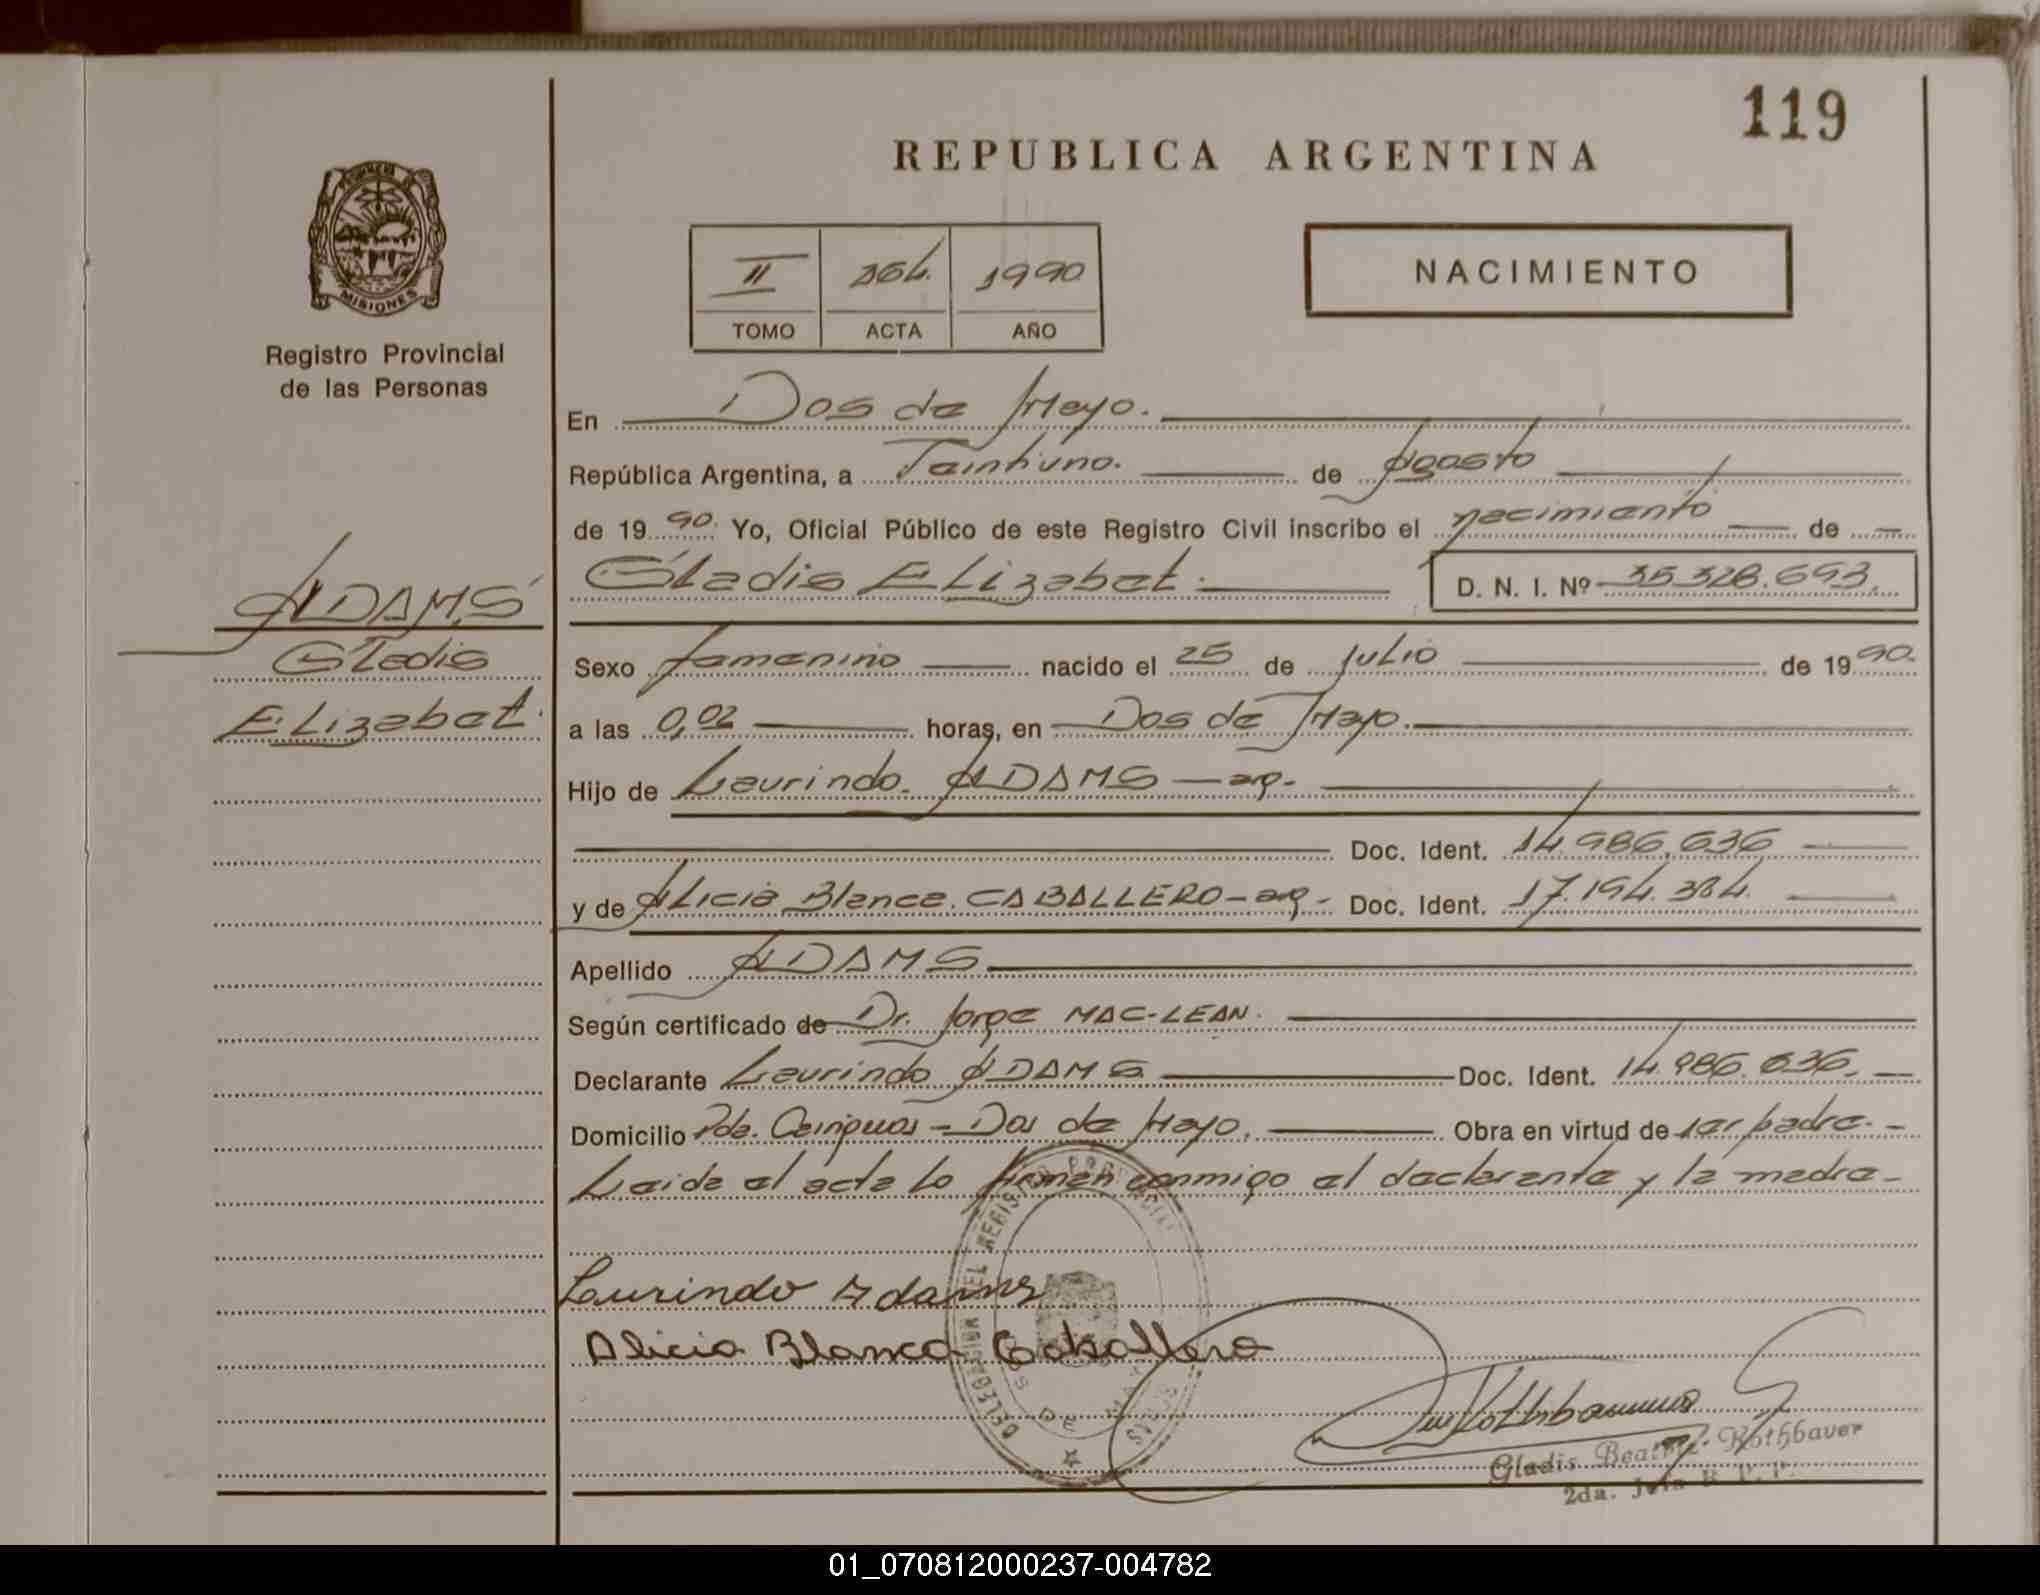 119
REPUBLICA ARGENTINA
PROVINCIA DE
MISIONES
Registro Provincial
de las Personas
II 264. 1990
TOMO ACTA AÑO
NACIMIENTO
En Dos de Mayo.
República Argentina, a Treintiuno. de Agosto
de 1990. Yo, Oficial Público de este Registro Civil inscribo el nacimiento de
Gladis Elizabet. D. N. I. Nº 35.328.693.
ADAMS
Gladis
Elizabet.
Sexo femenino nacido el 25 de julio de 1990.
a las 0,02 horas, en Dos de Mayo.
Hijo de Laurindo. ADAMS — arg.
Doc. Ident. 14.986.636
y de Alicia Blanca. CABALLERO - arg - Doc. Ident. 17.194.384.
Apellido ADAMS
Según certificado de Dr. Jorge MAC-LEAN.
Declarante Laurindo ADAMS Doc. Ident. 14.986.636.
Domicilio Pda. Cainguas - Dos de Mayo. Obra en virtud de ser padre. -
Leida el acta lo firman conmigo el declarante y la madre -
Laurindo Adams
Alicia Blanca Caballero
DELEGACION DEL REGISTRO PROVINCIAL
Rothbauer
Gladis Beatriz Rothbauer
2da. Jefa R. P. P.
01_070812000237-004782